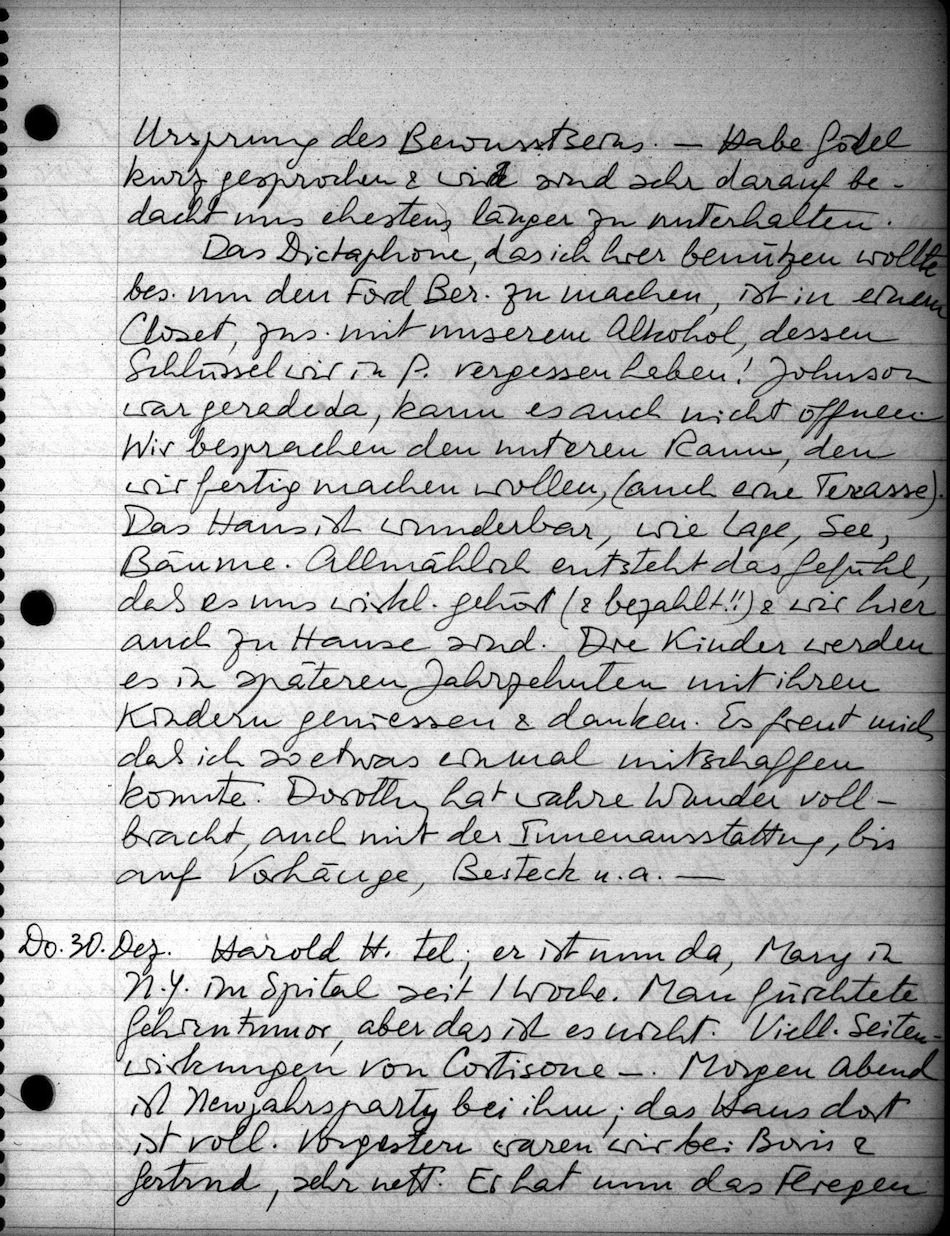 Ursprung des Bewusstseins. — Habe Gödel
kurz gesprochen & wir sind sehr darauf be-
dacht uns ehestens länger zu unterhalten.
Das Dictaphone, das ich hier benützen wollte
bes. um den Ford Ber. zu machen, ist in einem
Closet, zus. mit unserem Alkohol, dessen
Schlüssel wir in P. vergessen haben! Johnson
war gerade da, kann es auch nicht öffnen.
Wir besprachen den unteren Raum, den
wir fertig machen wollen, (auch eine Terasse).
Das Haus ist wunderbar, wie Lage, See,
Bäume. Allmählich entsteht das Gefühl,
daß es uns wirkl. gehört (& bezahlt!!) & wir hier
auch zu Hause sind. Die Kinder werden
es in späteren Jahrzehnten mit ihren
Kindern geniessen & danken. Es freut mich
daß ich so etwas einmal mitschaffen
konnte. Dorothy hat wahre Wunder voll-
bracht, auch mit der Innenausstattung, bis
auf Vorhänge, Besteck u.a. —
Do. 30. Dez. Harold H. tel; er ist nun da, Mary in
N.Y. im Spital seit 1 Woche. Man fürchtete
Gehirntumor, aber das ist es nicht. Viell. Seiten-
wirkungen von Cortisone —. Morgen Abend
ist Newjahrsparty bei ihm; das Haus dort
ist voll. Vorgestern waren wir bei Boris &
Gertrud, sehr nett. Er hat nun das Fliegen